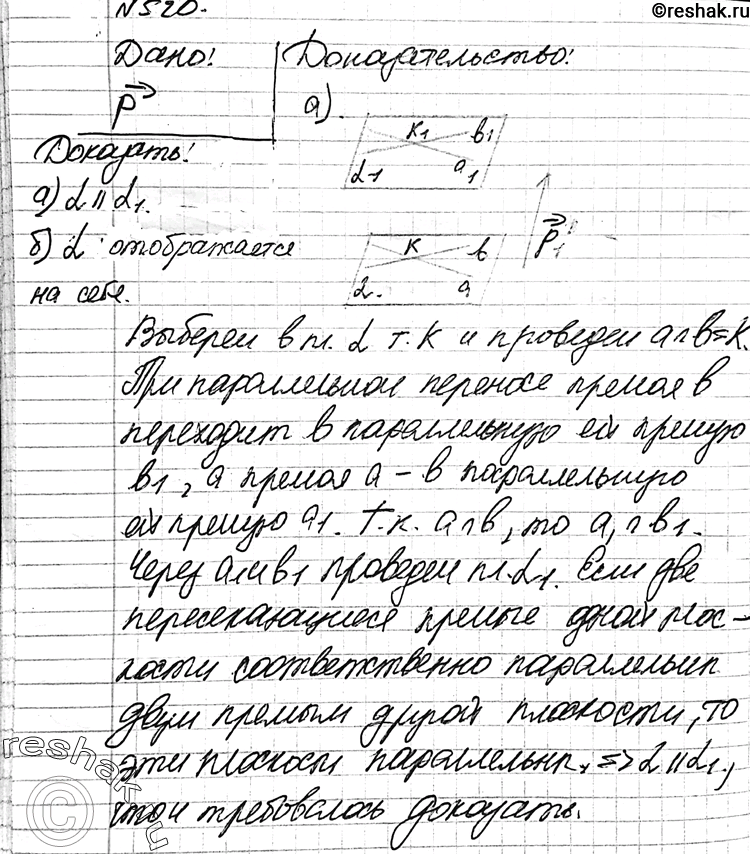 ©reshak.ru
N520.
Дано! Доказательство!
p а).
Доказать! K1 в1
α1 a1
а) α || α1. p1
б) α отображается K в
на себя. α. a
Выберем в пл. α т. K и проведем a∩в=K.
При параллельном переносе прямая в
переходит в параллельную ей прямую
в1, а прямая a – в параллельную
ей прямую a1. Т.к. a∩в, то a1∩в1.
Через a1 и в1 проведем пл. α1. Если две
пересекающиеся прямые одной плос-
кости соответственно параллельны
двум прямым другой плоскости, то
эти плоскости параллельны. => α || α1,
что и требовалось доказать.
reshak.ru
©